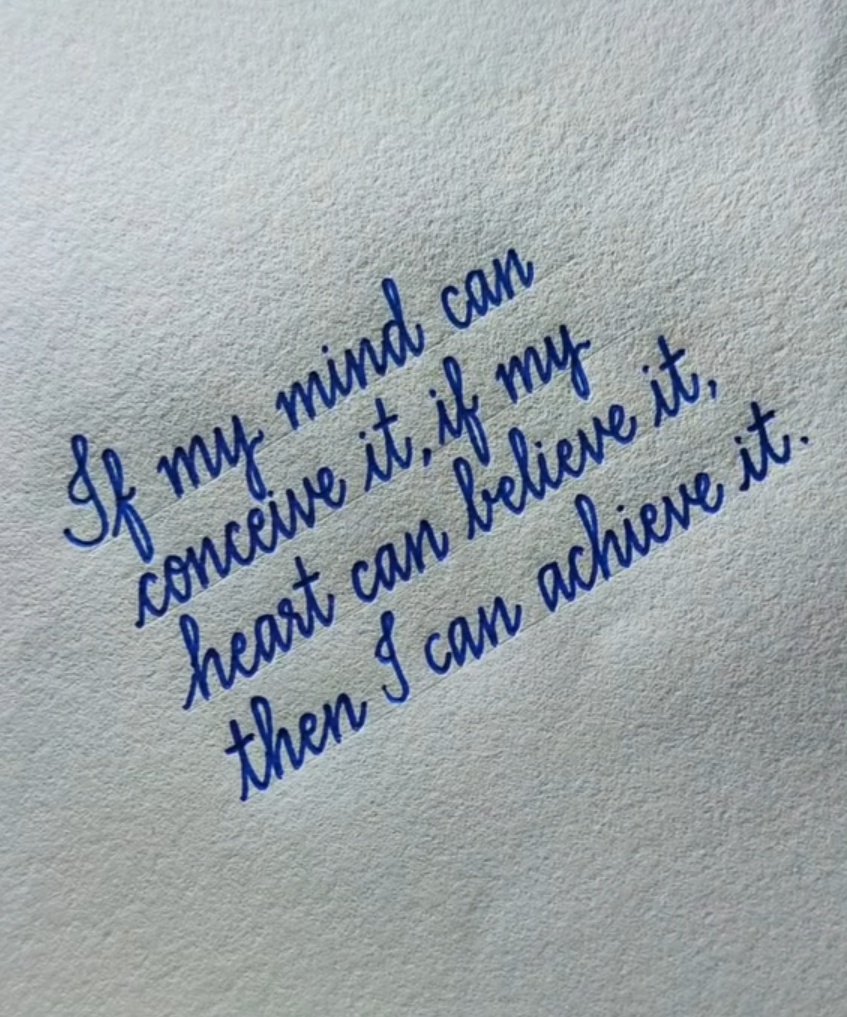 If my mind can
conceive it, if my
heart can believe it,
then I can achieve it.